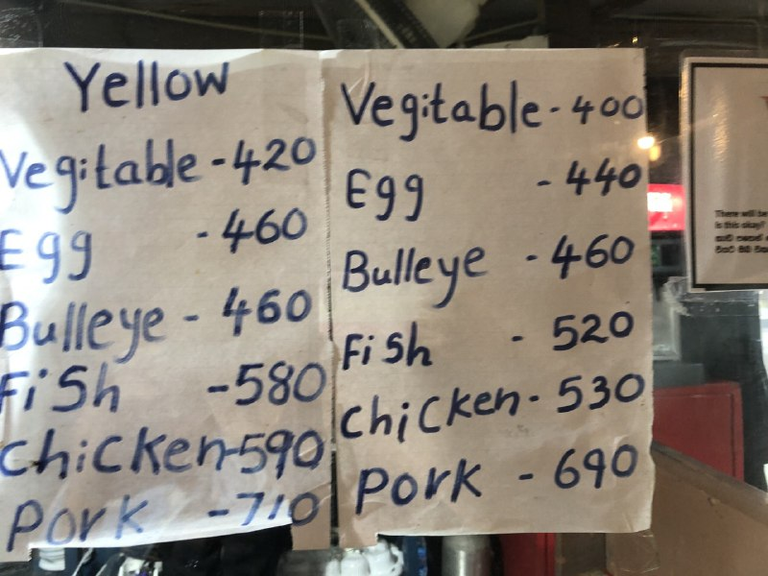 Yellow
Vegitable - 420
Egg - 460
Bulleye - 460
Fish - 580
Chicken - 590
Pork - 710
Vegitable - 400
Egg - 440
Bulleye - 460
Fish - 520
Chicken - 530
Pork - 690
There will be
Is this okay?